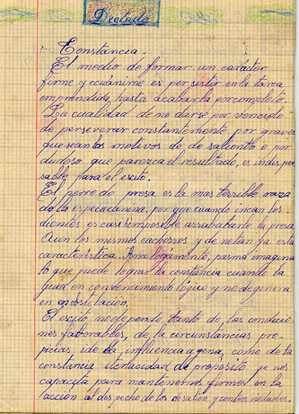 Dictado
Constancia.
El medio de formar un carácter
firme y ecuánime es persistir en la tarea
emprendida hasta acabarla por completo.
La cualidad de no darse por vencido
de perseverar constantemente por graves
que sean los motivos de desaliento o por
dudoso que parezca el resultado, es indispen
sable para el exito.
El perro de presa es la mas terrible raza
de la especie canina, por que cuando incan los
dientes es casi imposible arrabatarle la presa
Aun los mismos cachorros ya denotan ya esta
caracteristica. Analogamente, parma imagona
lo que puede lograr la constancia cuando la
guia un convencimiento lógico y no degenera
en obstinacion.
El exito no depende tanto de las condicio
nes faborables, de la circunstancias pro
picias ide la influencia agena, como de la
constancia, i tenacidad de proposito ye nos
capacita para mantenernos firmes en la
accion al despecho de los desalon y contrariedades.